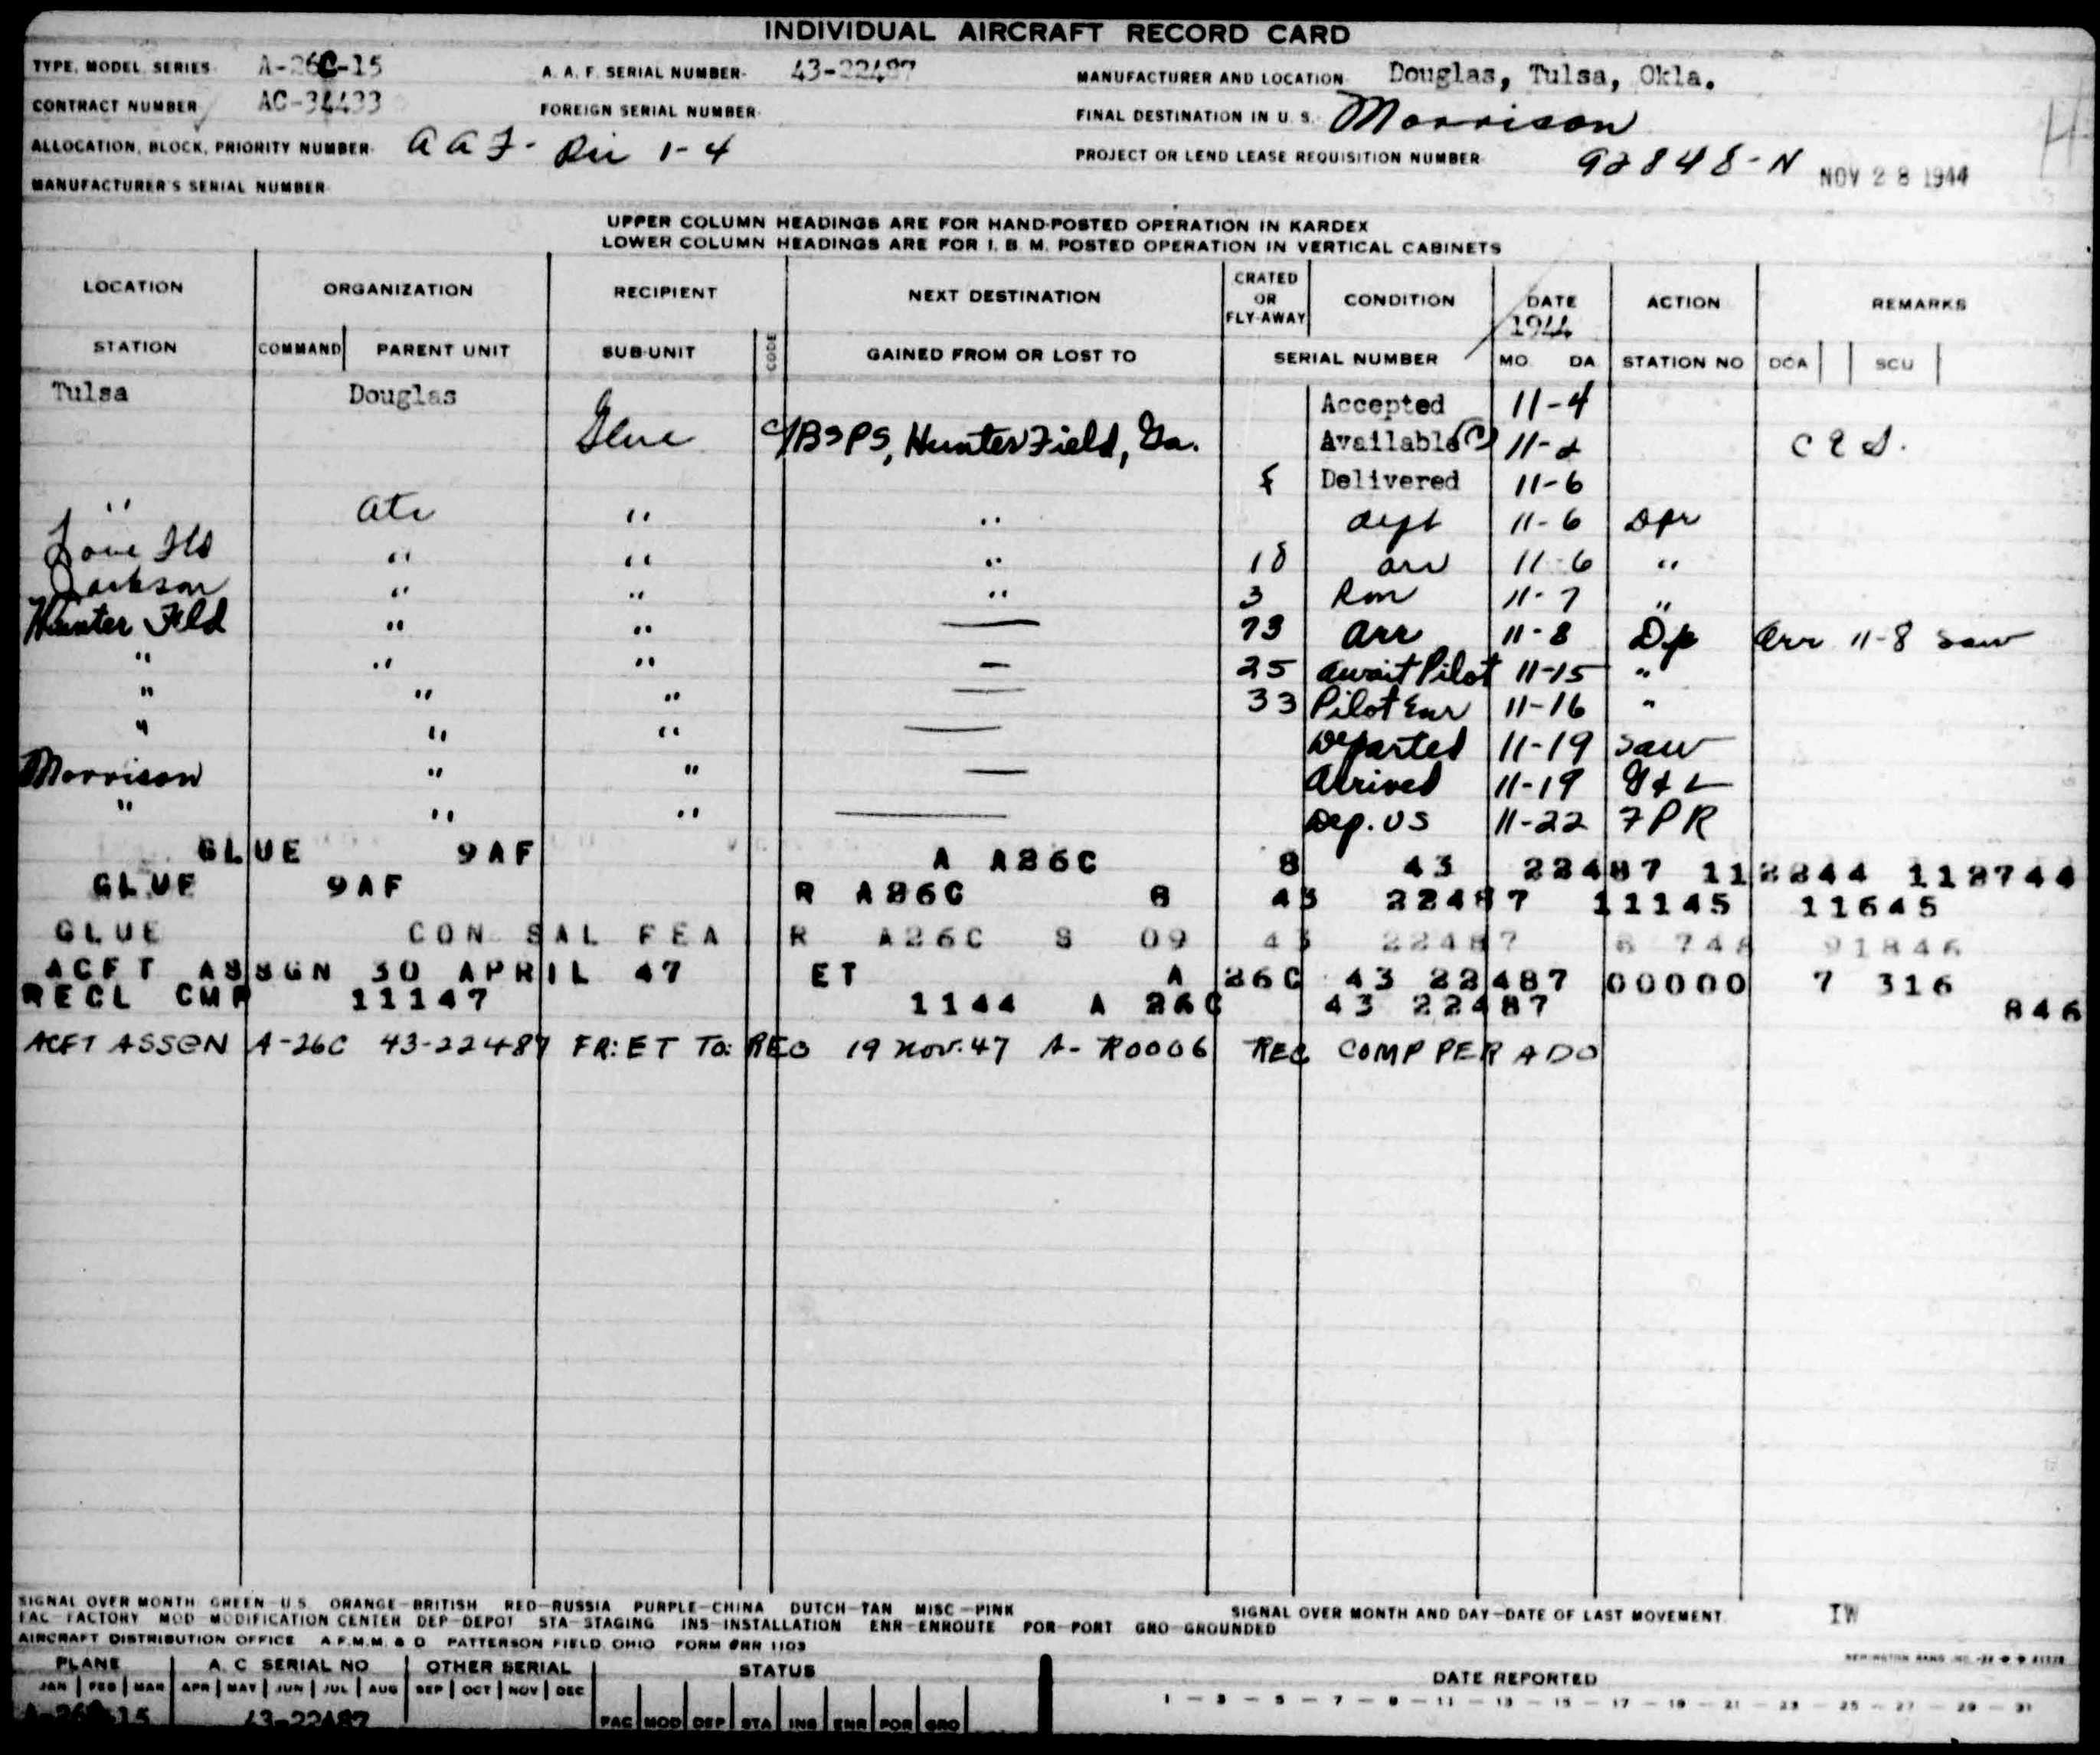 INDIVIDUAL AIRCRAFT RECORD CARD
TYPE, MODEL, SERIES A-26C-15 A. A. F. SERIAL NUMBER 43-22487 MANUFACTURER AND LOCATION Douglas, Tulsa, Okla.
CONTRACT NUMBER AC-34433 FOREIGN SERIAL NUMBER FINAL DESTINATION IN U. S. Morrison
ALLOCATION, BLOCK, PRIORITY NUMBER AAF- Dir 1-4 PROJECT OR LEND LEASE REQUISITION NUMBER 92848-N NOV 28 1944
MANUFACTURER'S SERIAL NUMBER
UPPER COLUMN HEADINGS ARE FOR HAND-POSTED OPERATION IN KARDEX
LOWER COLUMN HEADINGS ARE FOR I. B. M. POSTED OPERATION IN VERTICAL CABINETS
LOCATION ORGANIZATION RECIPIENT NEXT DESTINATION CRATED OR FLY-AWAY CONDITION DATE 1944 ACTION REMARKS
STATION COMMAND PARENT UNIT SUB-UNIT CODE GAINED FROM OR LOST TO SERIAL NUMBER MO. DA. STATION NO DCA SCU
Tulsa Douglas Accepted 11-4
Glue C/BSPS, Hunter Field, Ga. Available 11-2
Delivered 11-6
" Atc " " dept 11-6 Dpr
Love Fld " " " 18 arr 11-6 "
Jackson " " " 3 Ron 11-7 "
Hunter Fld " " — 73 Arr 11-8 Dp Arr 11-8 Saw
" " " — 25 Await Pilot 11-15 "
" " " — 33 Pilot Enr 11-16 "
" " " — Departed 11-19 Saw
Morrison " " — Arrived 11-19
" " " — Dep. US 11-22 7PR
GLUE 9AF A A26C 8 43 22487 112244 112744
GLUE 9AF R A26C 8 43 22487 11145 11645
GLUE CON SAL FEA R A26C S 09 43 22487 91846
ACFT ASSGN 30 APRIL 47 ET A 26C 43 22487 00000 7 316
RECL CMP 11147 1144 A 26C 43 22487 846
ACFT ASSGN A-26C 43-22487 FR: ET TO: REC 19 NOV. 47 A-R0006 REC COMP PER ADO
SIGNAL OVER MONTH GREEN-U.S. ORANGE-BRITISH RED-RUSSIA PURPLE-CHINA DUTCH-TAN MISC-PINK
SIGNAL OVER MONTH AND DAY-DATE OF LAST MOVEMENT. IW
FAC-FACTORY MOD-MODIFICATION CENTER DEP-DEPOT STA-STAGING INS-INSTALLATION ENR-ENROUTE POR-PORT GRO-GROUNDED
AIRCRAFT DISTRIBUTION OFFICE A.F.M.M. & D PATTERSON FIELD, OHIO FORM #RR 1103
PLANE A. C SERIAL NO OTHER SERIAL STATUS DATE REPORTED
JAN FEB MAR APR MAY JUN JUL AUG SEP OCT NOV DEC
1 - 3 - 5 - 7 - 9 - 11 - 13 - 15 - 17 - 19 - 21 - 23 - 25 - 27 - 29 - 31
A-26C-15 43-22487 FAC MOD DEP STA INS ENR POR GRO